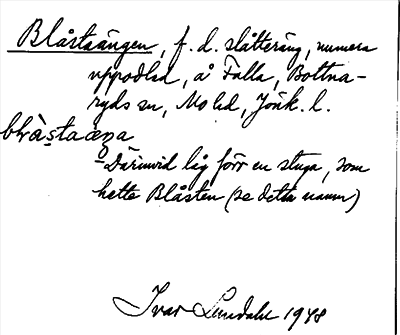 Blåstaängen, f.d. slåtteräng, numera
uppodlad, å Falla, Bottna-
ryds sn, Mo hd, Jönk. l.
blràstaæŋa
Därinvid låg förr en stuga, som
hette Blåsten (se detta namn)
Ivar Lundahl 1948